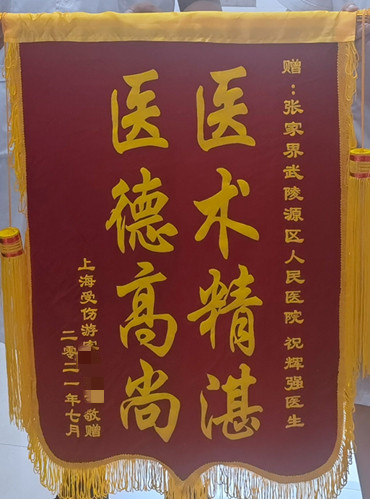 赠：张家界武陵源区人民医院 祝辉强医生
医术精湛
医德高尚
上海受伤游客 敬赠
二零二一年七月